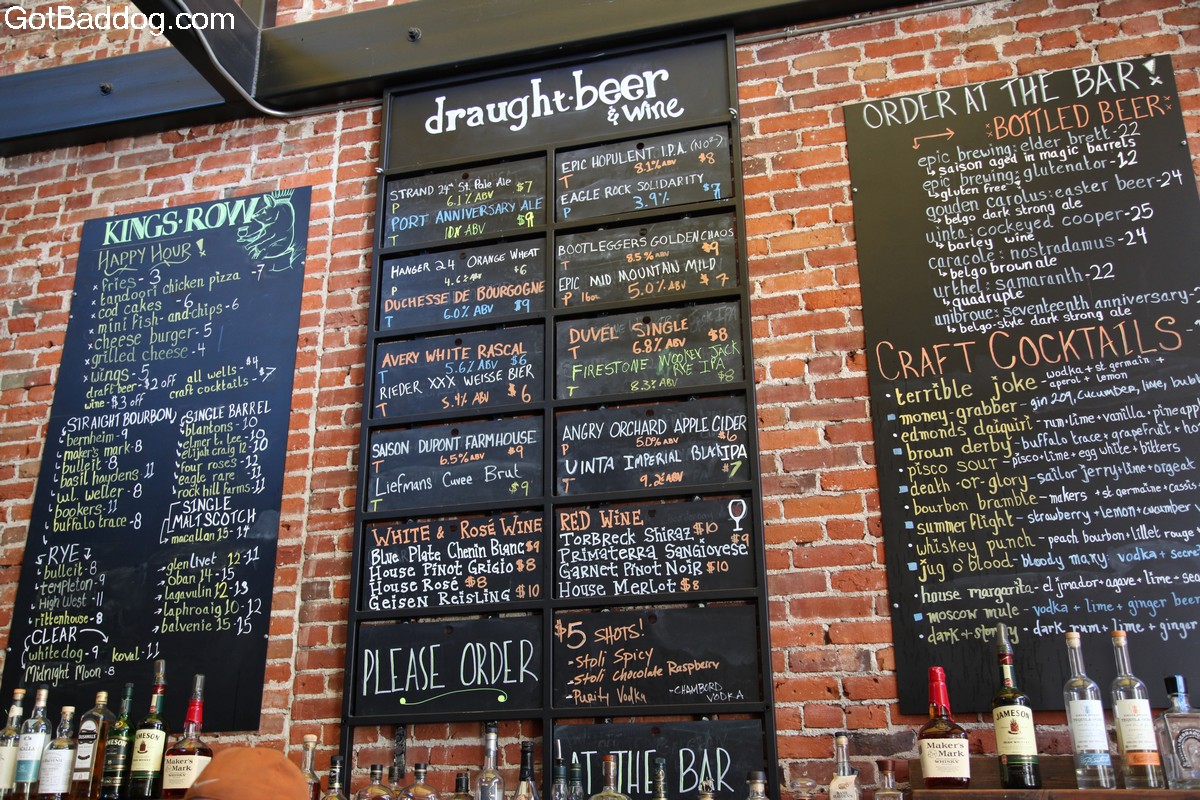 GotBaddog.com
KINGS·ROW
HAPPY HOUR!
x fries - 3
x tandoori chicken pizza - 7
x cod cakes - 6
x mini fish-and-chips - 6
x cheese burger - 5
x grilled cheese - 4
x wings - 5
draft beer - $2 off all wells - $4
wine - $3 off craft cocktails - $7
STRAIGHT BOURBON
bernheim - 9
maker's mark - 8
bulleit - 8
basil haydens - 11
w.l. weller - 8
bookers - 11
buffalo trace - 8
RYE
bulleit - 8
templeton - 9
High West - 11
rittenhouse - 8
CLEAR
white dog - 9 koval - 11
Midnight Moon - 8
SINGLE BARREL
blantons - 10
elmer t. lee - 10
elijah craig 12 - 10
four roses - 12
eagle rare - 11
rock hill farms - 11
SINGLE
MALT SCOTCH
macallan 15 - 14
glenlivet 12 - 11
oban 14 - 15
lagavulin 12 - 13
laphroaig 10 - 12
balvenie 15 - 15
draught·beer
& wine
STRAND 24th St. Pale Ale $7
P 6.1% ABV
PORT ANNIVERSARY ALE
T 10% ABV $9
EPIC HOPULENT I.P.A. (No 2)
T 8.1% ABV $8
EAGLE ROCK SOLIDARITY
P 3.9% $7
HANGER 24 ORANGE WHEAT
P 4.6% ABV $6
DUCHESSE DE BOURGOGNE
T 6.0% ABV $9
BOOTLEGGERS GOLDEN CHAOS
T 8.5% ABV $9
EPIC MID MOUNTAIN MILD
P 16oz. 5.0% ABV $7
AVERY WHITE RASCAL
T 5.6% ABV $6
RIEDER XXX WEISSE BIER
T 5.4% ABV $6
DUVEL SINGLE
T 6.8% ABV $8
FIRESTONE WOOKEY JACK
RYE IPA
T 8.3% ABV $8
SAISON DUPONT FARMHOUSE
T 6.5% ABV $9
Liefmans Cuvee Brut
T $9
ANGRY ORCHARD APPLE CIDER
P 5.0% ABV $6
UINTA IMPERIAL BLACK IPA
T 9.2% ABV $7
WHITE & ROSÉ WINE
Blue Plate Chenin Blanc $9
House Pinot Grigio $8
House Rosé $8
Geisen Reisling $10
RED WINE
Torbreck Shiraz $10
Primaterra Sangiovese $9
Garnet Pinot Noir $10
House Merlot $8
PLEASE ORDER
$5 SHOTS!
- Stoli Spicy
- Stoli Chocolate Raspberry
- Purity Vodka
- CHAMBORD VODKA
AT THE BAR
ORDER AT THE BAR!
BOTTLED BEER
epic brewing: elder brett - 22
saison aged in magic barrels
epic brewing: glutenator - 12
gluten free
gouden carolus: easter beer - 24
belgo dark strong ale
uinta: cockeyed cooper - 25
barley wine
caracole: nostradamus - 24
belgo brown ale
urthel: samaranth - 22
quadruple
unibroue: seventeenth anniversary -
belgo-style dark strong ale
CRAFT COCKTAILS -
terrible joke - vodka + st germain +
aperol + lemon
money-grabber - gin 209, cucumber, lime,
edmonds daiquiri - rum + lime + vanilla +
brown derby - buffalo trace + grapefruit +
pisco sour - pisco + lime + egg white + bitters
death-or-glory - sailor jerry + lime + orgeat
bourbon bramble - makers + st germaine + cassis
summer flight - strawberry + lemon + cucumber
whiskey punch - peach bourbon + lillet rouge
jug o' blood - bloody mary: vodka +
house margarita - el jmador + agave + lime +
moscow mule - vodka + lime + ginger beer
dark + stormy - dark rum + lime + ginger
JAMESON
Maker's Mark
JAMESON
Maker's Mark